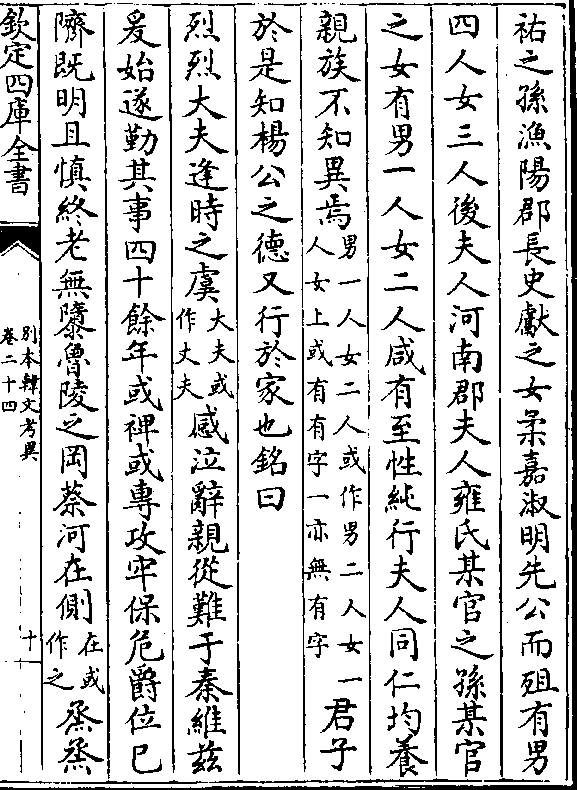 祐之孫漁陽郡長史獻之女柔嘉淑明先公而殂有男
四人女三人後夫人河南郡夫人雍氏某官之孫某官
之女有男一人女二人咸有至性純行夫人同仁均養
親族不知異焉男一人女二人或作男二人女一人女上或有有字一亦無有字君子
於是知楊公之德又行於家也銘曰
烈烈大夫逢時之虞大夫或作丈夫感泣辭親從難于秦維茲
爰始遂勤其事四十餘年或裨或專攻牢保危爵位已
隮既明且慎終老無隳魯陵之岡蔡河在側在或作之烝烝
欽定四庫全書
別本韓文考異
卷二十四
十